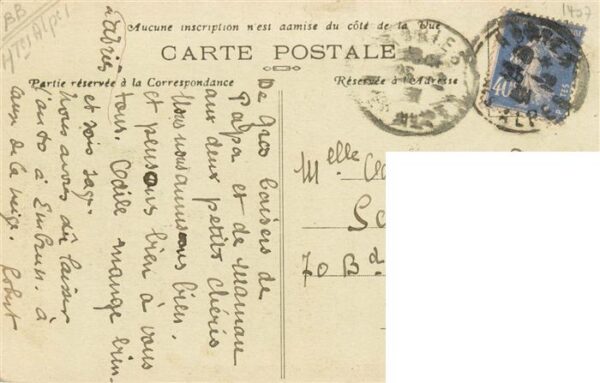 BB
Htes Alpes 1
1427
Aucune inscription n'est admise du côté de la Vue
CARTE POSTALE
Partie réservée à la Correspondance
Réservée à l'Adresse
40
ABRIES
à Abriès
De Gros baisers de
Papa et de Maman
aux deux petits chéris
Nous nous amusons bien.
et pensons bien à vous
tous. Odile mange bien
et sois sage.
Nous avons dû laisser
l'auto à Embrun. à
cause de la neige. Robert
Melle
70 Bd